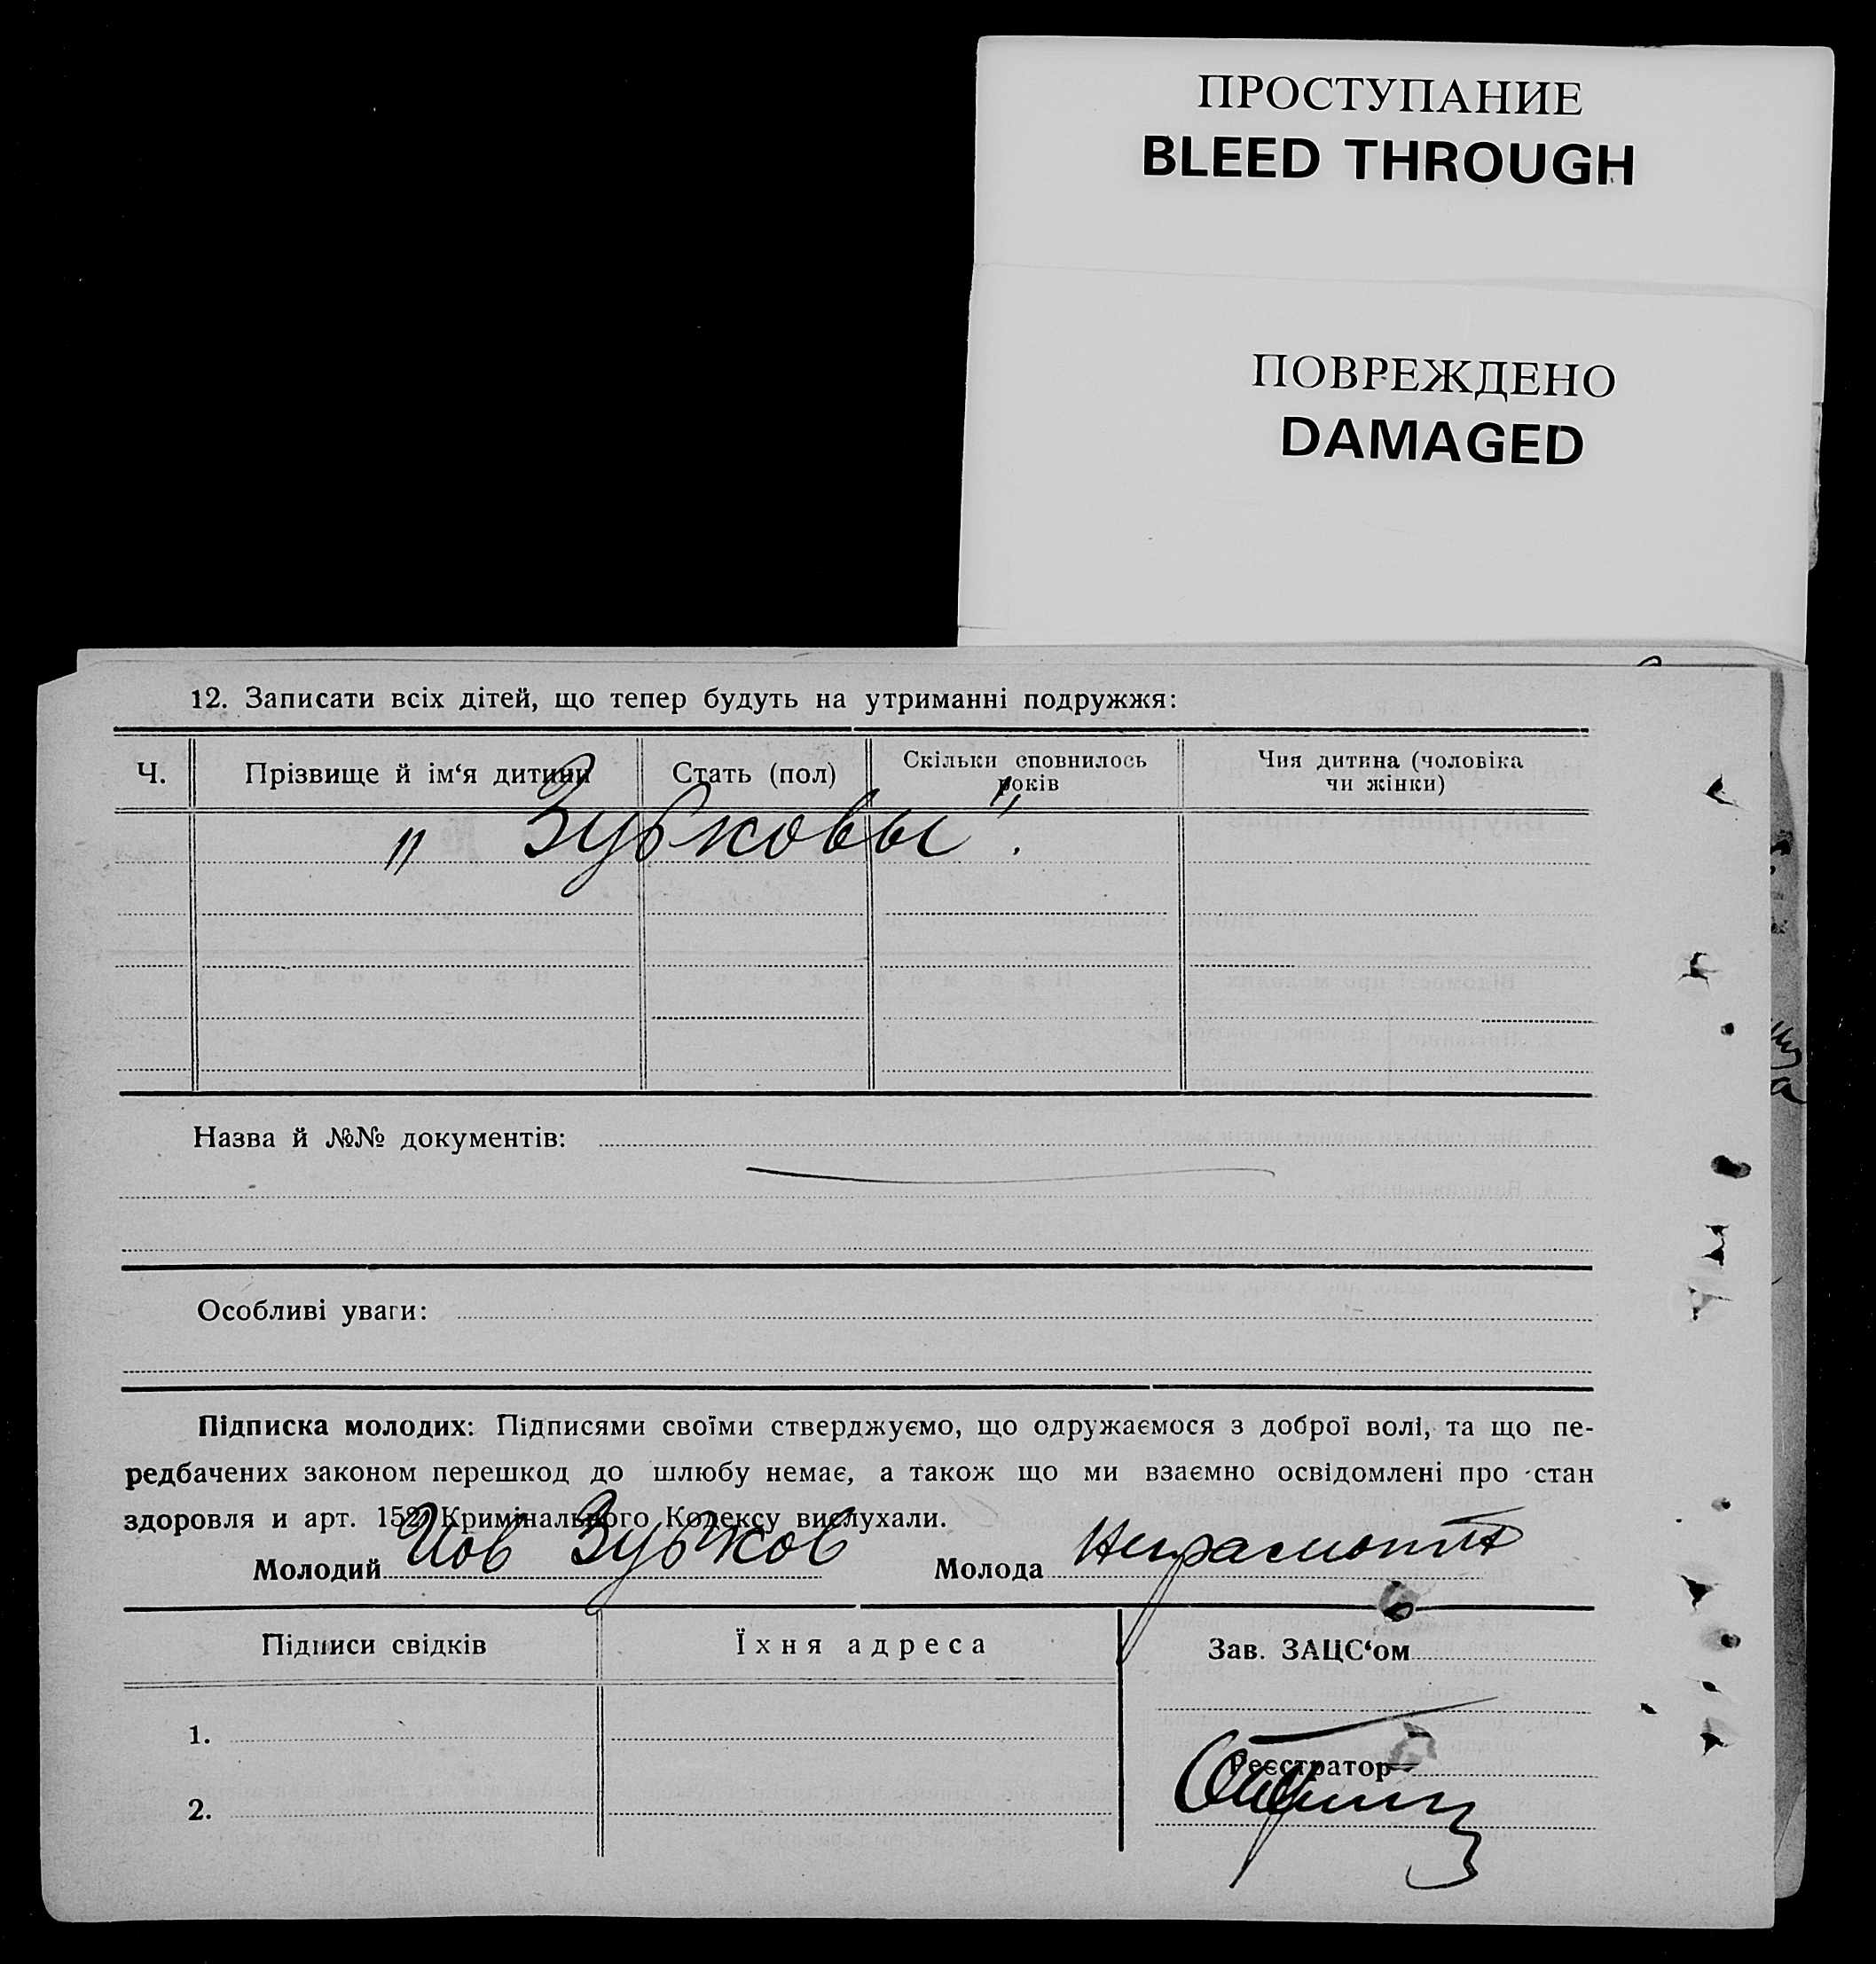 ПРОСТУПАНИЕ
BLEED THROUGH
ПОВРЕЖДЕНО
DAMAGED
12. Записати всіх дітей, що тепер будуть на утриманні подружжя:
Ч. Прізвище й ім‘я дитини Стать (пол) Скільки сповнилось років Чия дитина (чоловіка чи жінки)
„ Зубковы".
Назва й №№ документів:
Особливі уваги:
Підписка молодих: Підписями своїми стверджуємо, що одружаємося з доброї волі, та що пе-
редбачених законом перешкод до шлюбу немає, а також що ми взаємно освідомлені про стан
здоровля и арт. 152 Кримінального Кодексу вислухали.
Молодий Иов Зубков Молода Неграмотна
Підписи свідків Їхня адреса Зав. ЗАЦС‘ом
1.
Реєстратор
2.